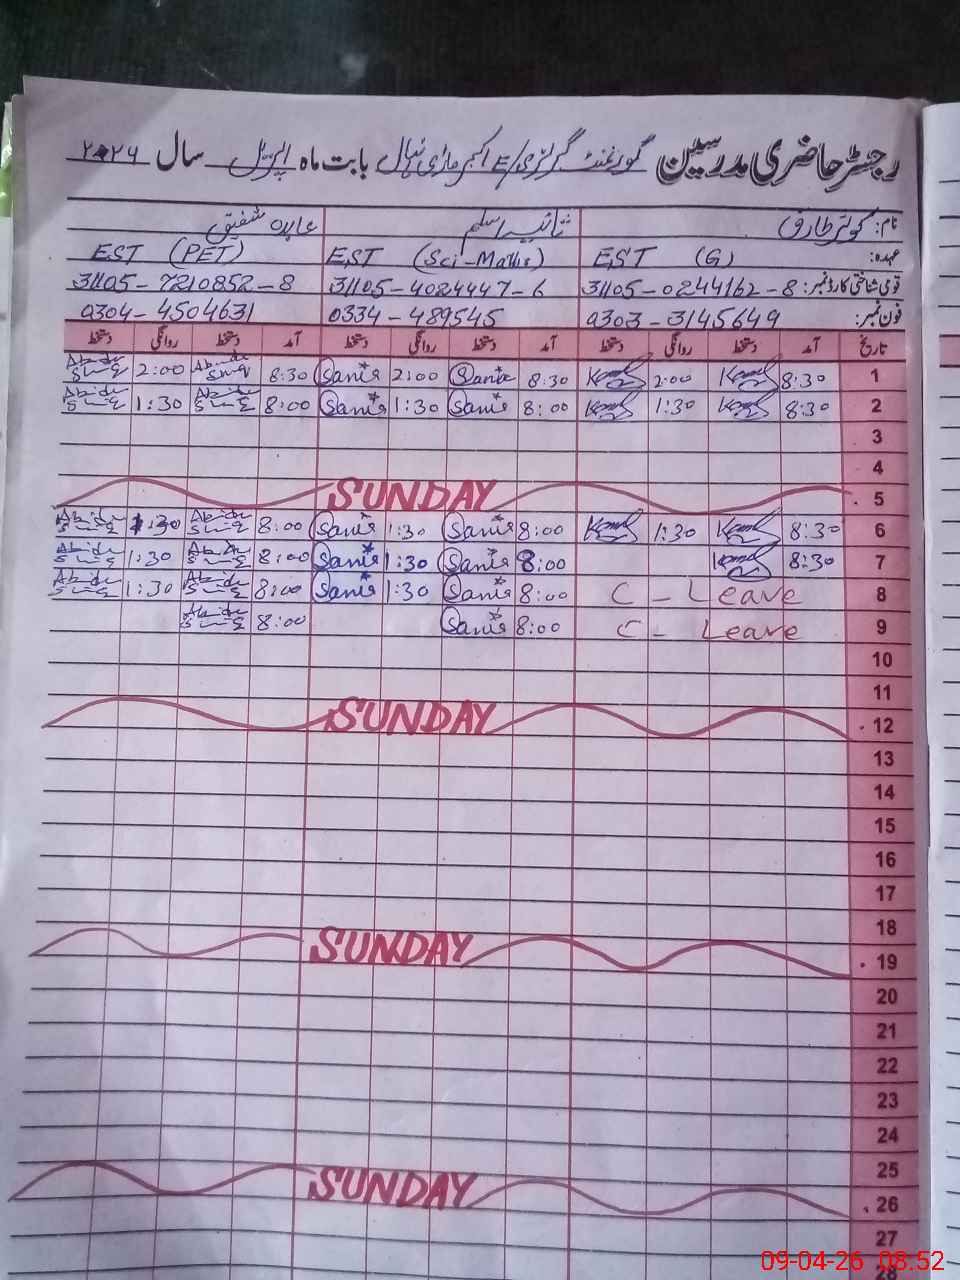 رجسٹر حاضری مدرسین گورنمنٹ گرلز E/ بابت ماہ اپریل سال ۲۰۲۶
نام: کوثر طارق ثانیہ اسلم عابدہ شفیق
عہدہ: EST (G) EST (Sci-Maths) EST (PET)
قومی شناختی کارڈ نمبر: 31105-0244162-8 31105-4024447-6 31105-7210852-8
فون نمبر: 0303-3145649 0334-489545 0304-4504631
تاریخ آمد دستخط روانگی دستخط آمد دستخط روانگی دستخط آمد دستخط روانگی دستخط
1 8:30 2:00 8:30 Sania 2:00 Sania 8:30 Abida 2:00 Abida
2 8:30 1:30 8:00 Sania 1:30 Sania 8:00 Abida 1:30 Abida
3
4
5 SUNDAY
6 8:30 1:30 8:00 Sania 1:30 Sania 8:00 Abida 1:30 Abida
7 8:30 8:00 Sania 1:30 Sania 8:00 Abida 1:30 Abida
8 C - Leave 8:00 Sania 1:30 Sania 8:00 Abida 1:30 Abida
9 C - Leave 8:00 Sania 8:00 Abida
10
11
12 SUNDAY
13
14
15
16
17
18
19 SUNDAY
20
21
22
23
24
25
26 SUNDAY
27
28
09-04-26 08:52